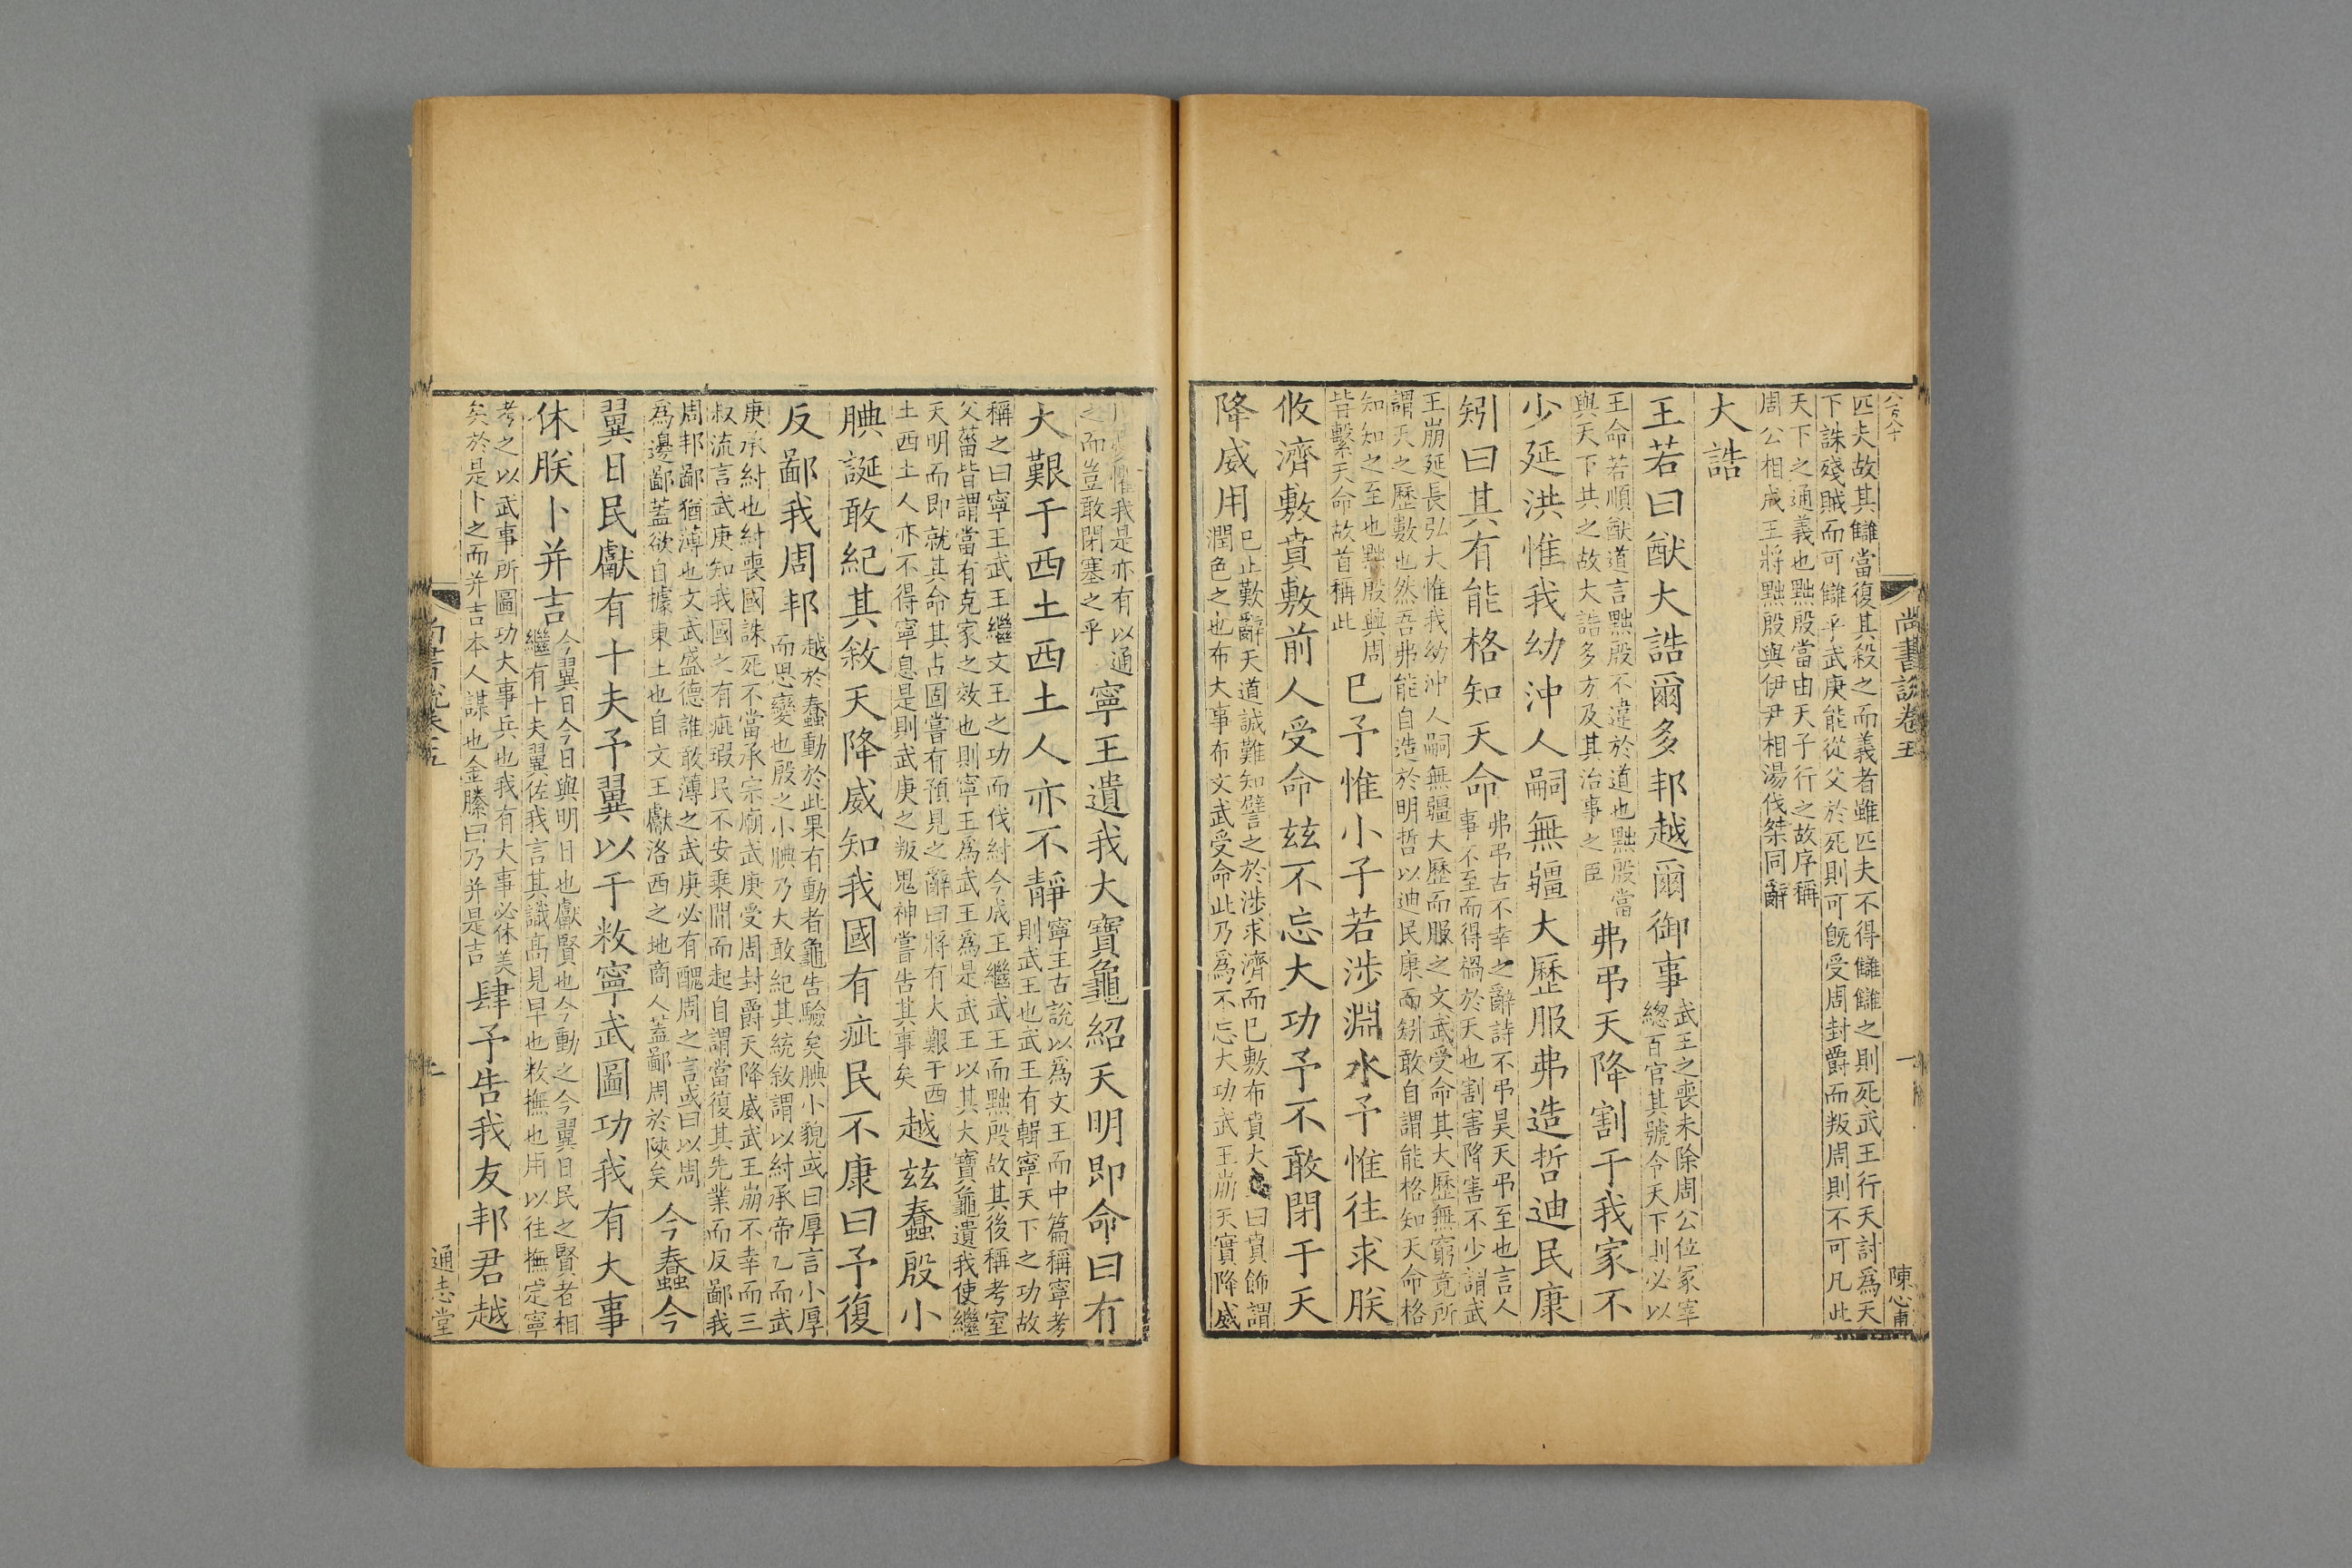 八百八十
尚書説卷五
一
陳心甫
匹夫故其讎當復其殺之而義者雖匹夫不得讎讎之則死武王行天討爲天
下誅殘賊而可讎乎武庚能從父於死則可旣受周封爵而叛周則不可凡此
天下之通義也黜殷當由天子行之故序稱
周公相成王將黜殷與伊尹相湯伐桀同辭
大誥
王若曰猷大誥爾多邦越爾御事武王之喪未除周公位冢宰
總百官其號令天下則必以
王命若順猷道言黜殷不違於道也黜殷當
與天下共之故大誥多方及其治事之臣弗弔天降割于我家不
少延洪惟我幼沖人嗣無疆大歷服弗造哲迪民康
矧曰其有能格知天命弗弔古不幸之辭詩不弔昊天弔至也言人
事不至而得禍於天也割害降害不少謂武
王崩延長弘大惟我幼沖人嗣無疆大歷而服之文武受命其大歷無窮竟所
謂天之歷數也然吾弗能自造於明哲以迪民康而矧敢自謂能格知天命格
知知之至也黜殷興周
皆繫天命故首稱此已予惟小子若涉淵水予惟往求朕
攸濟敷賁敷前人受命玆不忘大功予不敢閉于天
降威用已止歎辭天道誠難知譬之於涉求濟而已敷布賁大曰賁飾謂
潤色之也布大事布文武受命此乃爲不忘大功武王崩天實降威
惟我是亦有以通
之而豈敢閉塞之乎寧王遺我大寶龜紹天明即命曰有
大艱于西土西土人亦不靜寧王古說以爲文王而中篇稱寧考
則武王也武王有輯寧天下之功故
稱之曰寧王武王繼文王之功而伐紂今成王繼武王而黜殷故其後稱考室
父菑皆謂當有克家之效也則寧王爲武王爲是武王以其大寶龜遺我使繼
天明而即就其命其占固嘗有預見之辭曰將有大艱于西
土西土人亦不得寧息是則武庚之叛鬼神嘗告其事矣越玆蠢殷小
腆誕敢紀其敘天降威知我國有疵民不康曰予復
反鄙我周邦越於蠢動於此果有動者龜告驗矣腆小貌或曰厚言小厚
而思變也殷之小腆乃大敢紀其統敘謂以紂承帝乙而武
庚承紂也紂喪國誅死不當承宗廟武庚受周封爵天降威武王崩不幸而三
叔流言武庚知我國之有疵瑕民不安乗閒而起自謂當復其先業而反鄙我
周邦鄙猶薄也文武盛德誰敢薄之武庚必有醜周之言或曰以周
爲邊鄙蓋欲自據東土也自文王獻洛西之地商人蓋鄙周於陜矣今蠢今
翼日民獻有十夫予翼以于敉寧武圖功我有大事
休朕卜并吉今翼日今日與明日也獻賢也今動之今翼日民之賢者相
繼有十夫翼佐我言其識高見早也敉撫也用以往撫定寧
考之以武事所圖功大事兵也我有大事必休美
矣於是卜之而并吉本人謀也金縢曰乃并是吉肆予告我友邦君越
尚書説卷五
通志堂